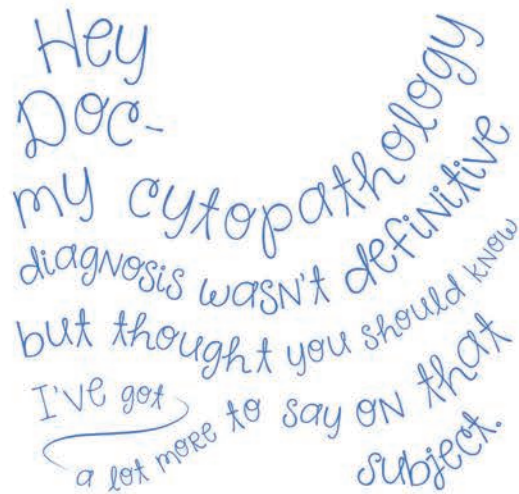 Hey
Doc-
my cytopathology
diagnosis wasn't definitive
but thought you should know
I've got
a lot more to say on that
subject.